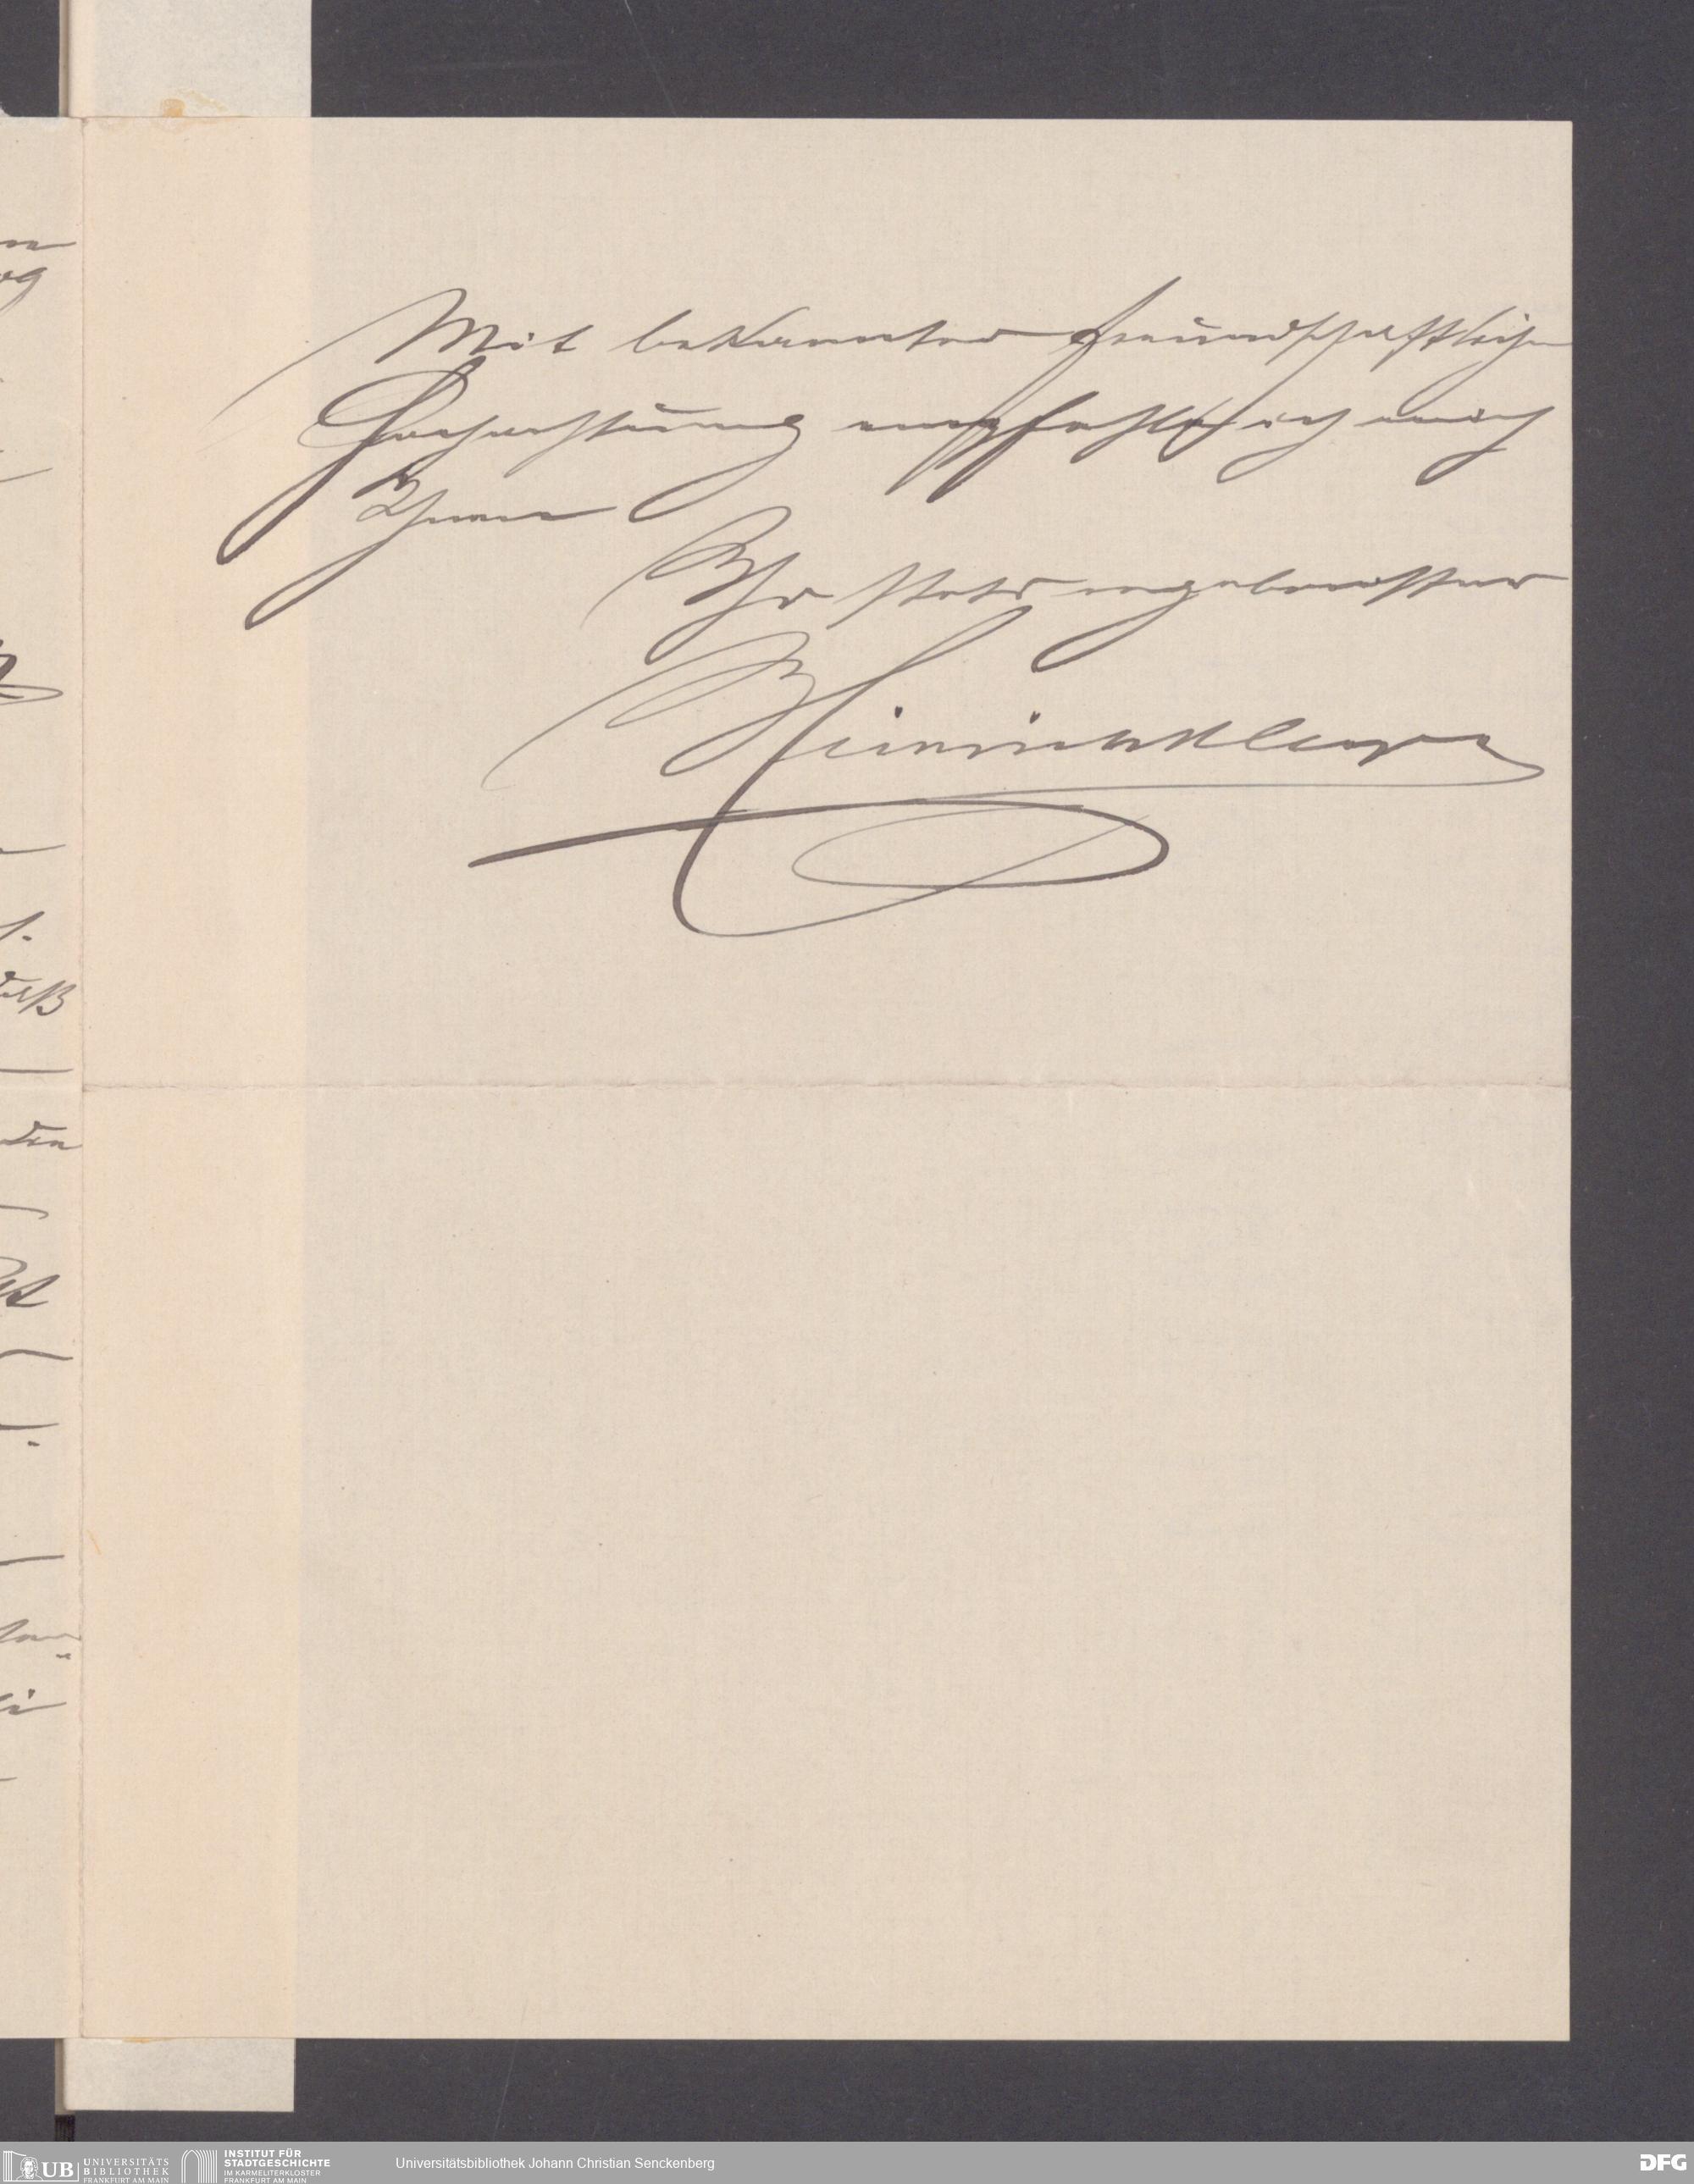 Mit bekannter freundschaftlicher
Hochachtung empfehle ich mich
Ihnen
Ihr stets ergebenster
Heinrich
daß
den
UB
UNIVERSITÄTS
BIBLIOTHEK
FRANKFURT AM MAIN
INSTITUT FÜR
STADTGESCHICHTE
IM KARMELITERKLOSTER
FRANKFURT AM MAIN
Universitätsbibliothek Johann Christian Senckenberg
DFG